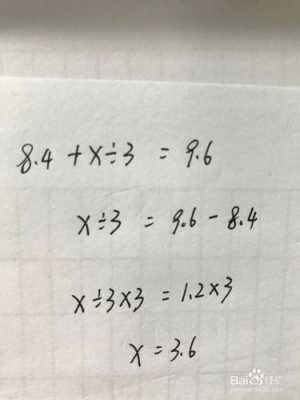 8.4 + x ÷ 3 = 9.6
x ÷ 3 = 9.6 - 8.4
x ÷ 3 × 3 = 1.2 × 3
x = 3.6
Bai 经验